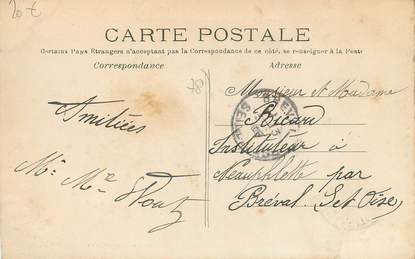 20 €
CARTE POSTALE
Certains Pays Étrangers n'acceptant pas la Correspondance de ce côté, se renseigner à la Poste
Correspondance
Adresse
Amitiées
Mr Me
Monsieur et Madame
Bicard
Instituteur à
par
Bréval, Set Oise